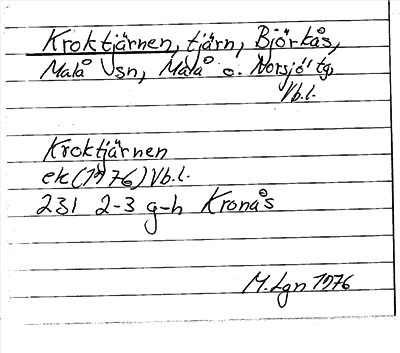 Kroktjärnen, tjärn, Björkås,
Malå sn, Malå o. Norsjö tg,
Vb.l.
Kroktjärnen
ek (1976) Vb.l.
231 2-3 g-h Kronås
M.Lgn 1976